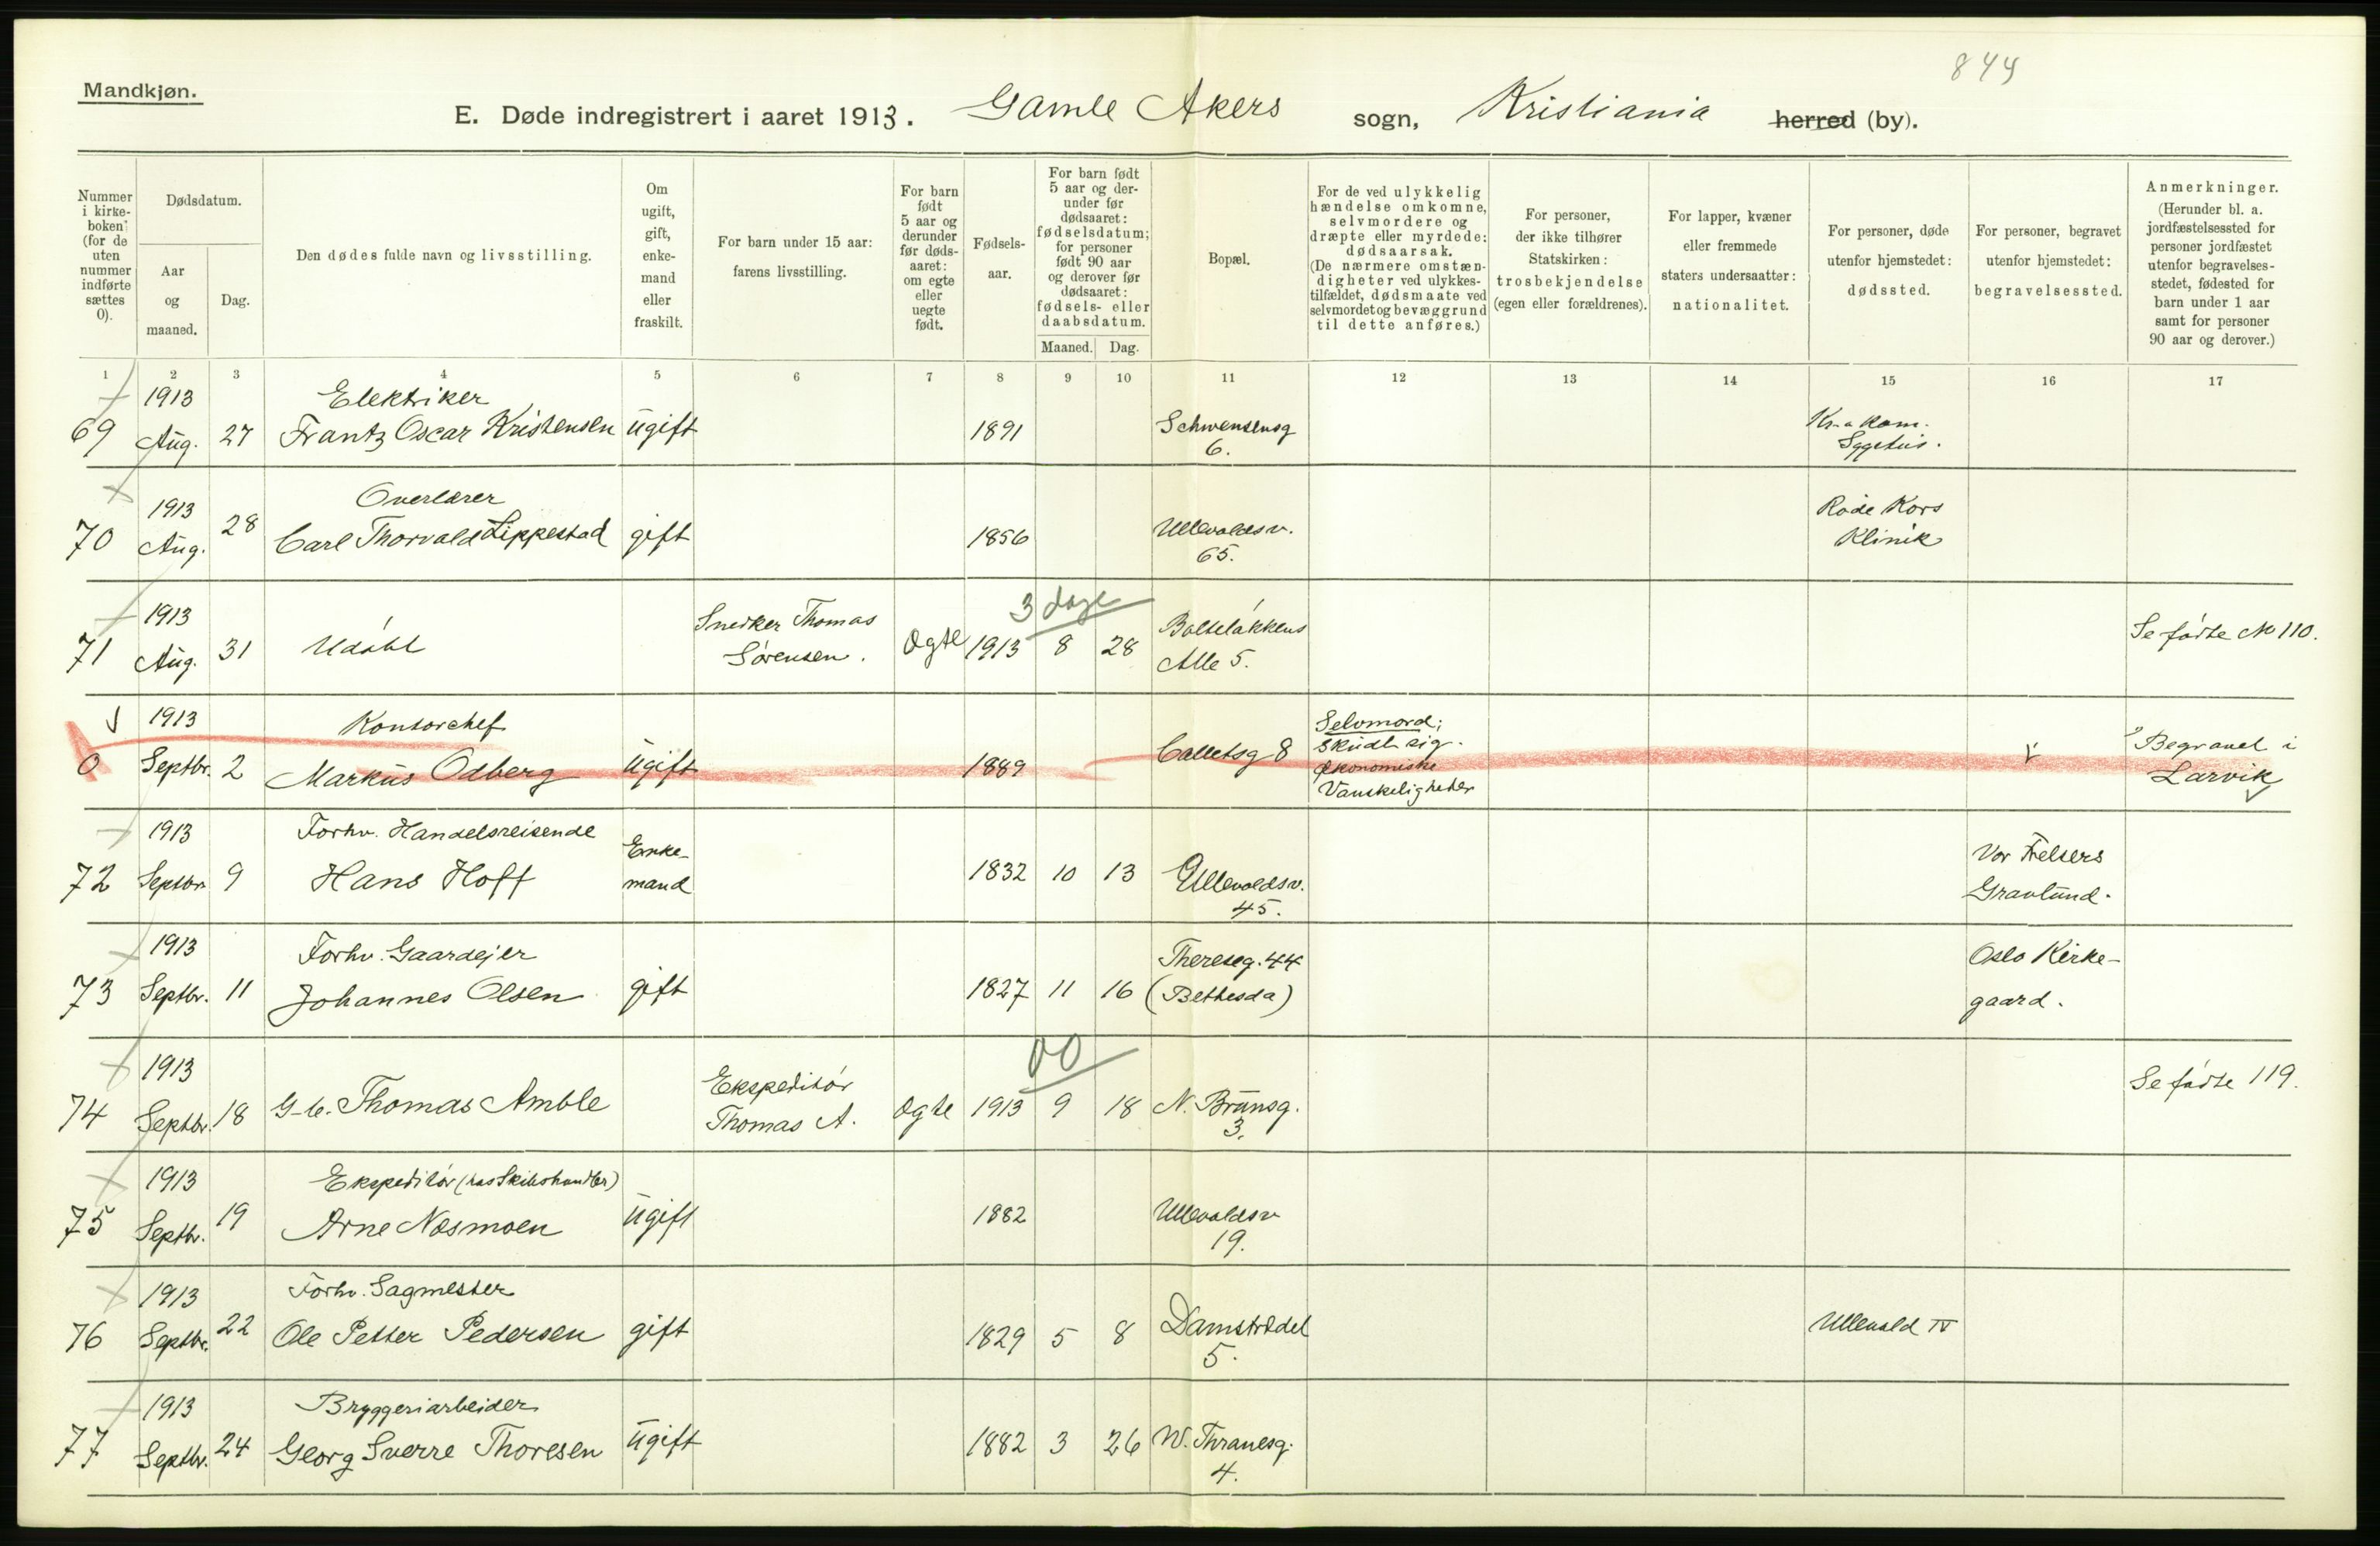 844
Mandkjøn.
E. Døde indregistrert i aaret 1913. Gamle Akers sogn, Kristiania herred (by).
Nummer i kirkeboken (for de uten nummer indførte sættes 0).
Dødsdatum.
Aar og maaned.
Dag.
Den dødes fulde navn og livsstilling.
Om ugift, gift, enkemand eller fraskilt.
For barn under 15 aar: farens livsstilling.
For barn født 5 aar og derunder før dødsaaret: om egte eller uegte født.
Fødselsaar.
For barn født 5 aar og derunder før dødsaaret: fødselsdatum; for personer født 90 aar og derover før dødsaaret: fødsels- eller daabsdatum.
Maaned. Dag.
Bopæl.
For de ved ulykkelig hændelse omkomne, selvmordere og dræpte eller myrdede: dødsaarsak. (De nærmere omstændigheter ved ulykkestilfældet, dødsmaate ved selvmordet og bevæggrund til dette anføres.)
For personer, der ikke tilhører Statskirken: trosbekjendelse (egen eller forældrenes).
For lapper, kvæner eller fremmede staters undersaatter: nationalitet.
For personer, døde utenfor hjemstedet: dødssted.
For personer, begravet utenfor hjemstedet: begravelsessted.
Anmerkninger. (Herunder bl. a. jordfæstelsessted for personer jordfæstet utenfor begravelsesstedet, fødested for barn under 1 aar samt for personer 90 aar og derover.)
1 2 3 4 5 6 7 8 9 10 11 12 13 14 15 16 17
69 1913 Aug. 27 Elektriker Frantz Oscar Kristensen ugift 1891 Schwensensg 6. Kr.a Kom. Sygehus.
70 1913 Aug. 28 Overlærer Carl Thorvald Lippestad gift 1856 Ullevoldsv. 65. Røde Kors Klinik
71 1913 Aug. 31 Udøbt Snedker Thomas Sørensen. Ogte 1913 8 28 3 dage Bolteløkkens Alle 5. Se fødte No 110.
0 1913 Septbr. 2 Kontorchef Markus Odberg ugift 1889 Calletsg 8 Selvmord; skudt sig. Økonomiske Vanskeligheter Begravet i Larvik
72 1913 Septbr 9 Forhv. Handelsreisende Hans Hoff Enkemand 1832 10 13 Ullevoldsv. 45. Vor Frelsers Gravlund.
73 1913 Septbr. 11 Forhv. Gaardejer Johannes Olsen gift 1827 11 16 Thereseg. 44 (Bethesda) Oslo Kirkegaard.
74 1913 Septbr. 18 G-b. Thomas Amble Ekspeditør Thomas A. Ogte 1913 9 18 00 N. Brunsg. 3. Se fødte 119.
75 1913 Septbr. 19 Ekspeditør (hos Skibshandler) Arne Næsmoen ugift 1882 Ullevoldsv 19.
76 1913 Septbr. 22 Forhv. Sagmester Ole Petter Pedersen gift 1829 5 8 Damstrædet 5. Ullevold IV
77 1913 Septbr. 24 Bryggeriarbeider Georg Sverre Thoresen ugift 1882 3 26 W. Thranesg. 4.